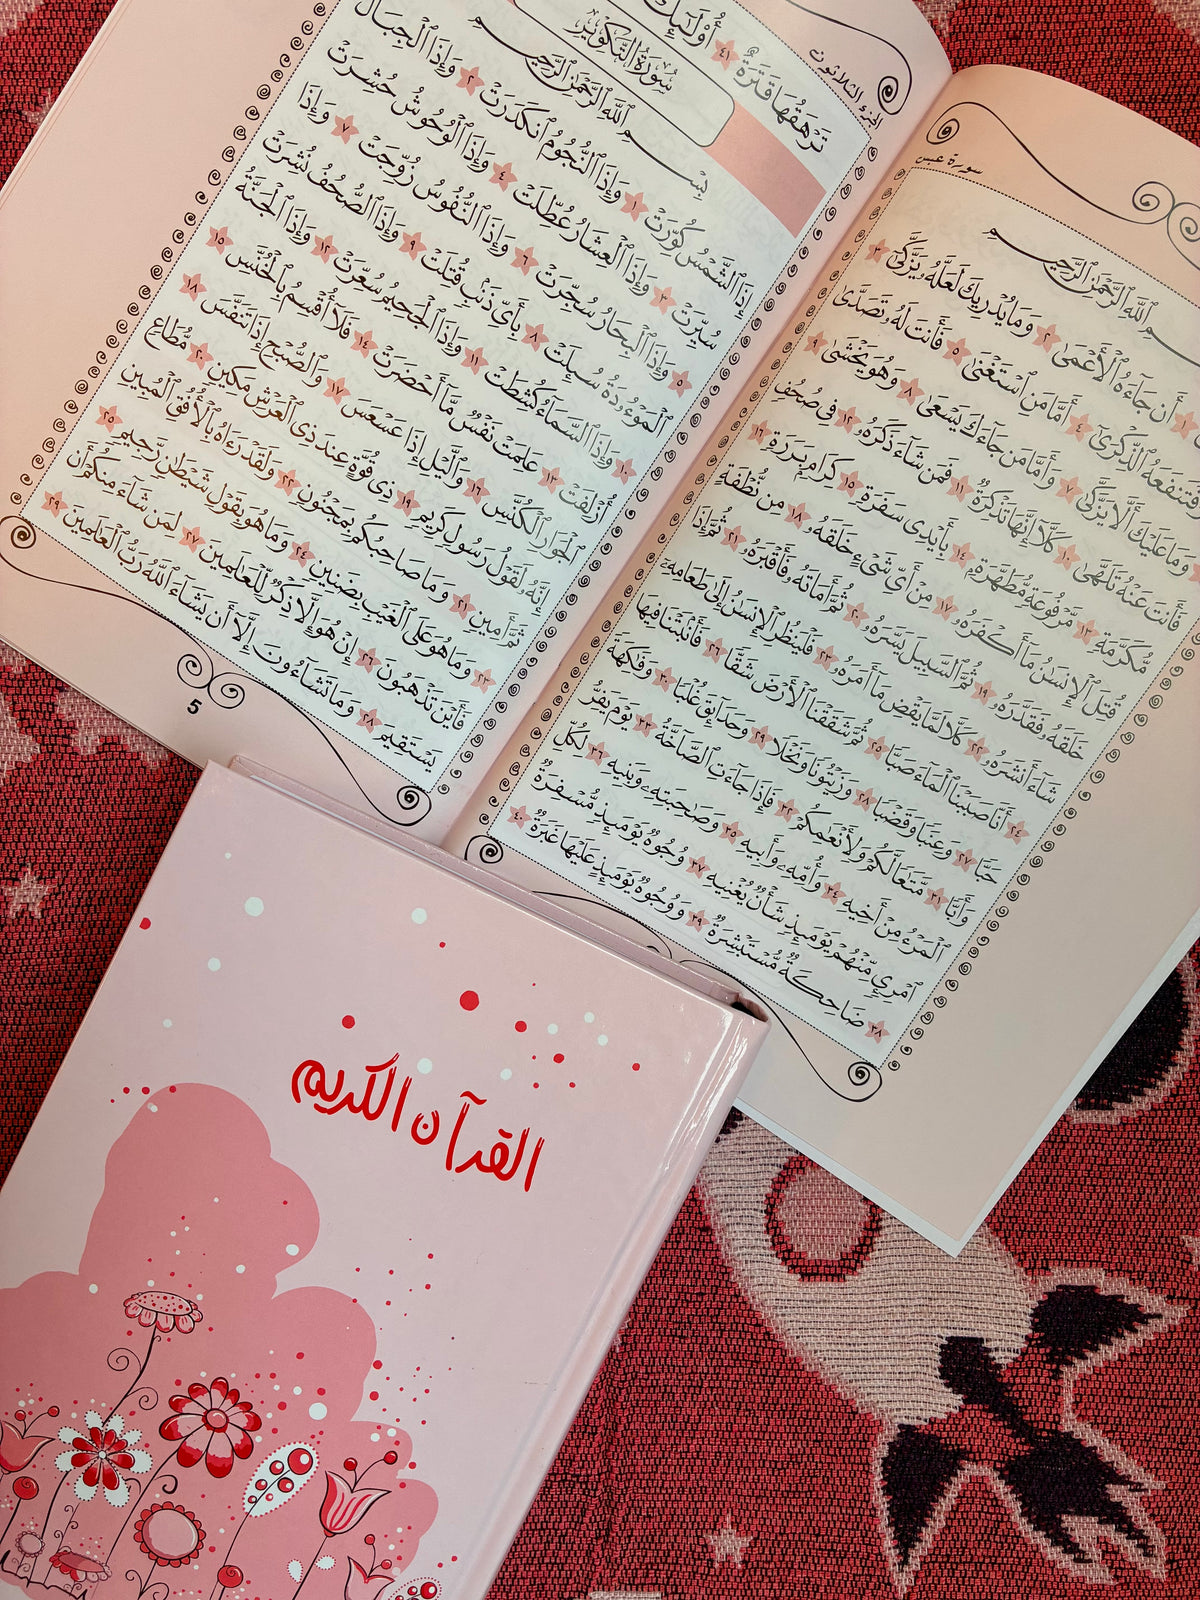 سورة عبس
ٱللَّهِ ٱلرَّحْمَٰنِ ٱلرَّحِيمِ
١ أَن جَآءَهُ ٱلْأَعْمَىٰ ٢ وَمَا يُدْرِيكَ لَعَلَّهُۥ يَزَّكَّىٰ ٣
فَتَنفَعَهُ ٱلذِّكْرَىٰٓ ٤ أَمَّا مَنِ ٱسْتَغْنَىٰ ٥ فَأَنتَ لَهُۥ تَصَدَّىٰ
وَمَا عَلَيْكَ أَلَّا يَزَّكَّىٰ ٧ وَأَمَّا مَن جَآءَكَ يَسْعَىٰ ٨ وَهُوَ يَخْشَىٰ ٩
فَأَنتَ عَنْهُ تَلَهَّىٰ ١٠ كَلَّآ إِنَّهَا تَذْكِرَةٌ ١١ فَمَن شَآءَ ذَكَرَهُۥ ١٢ فِى صُحُفٍ
مُّكَرَّمَةٍ ١٣ مَّرْفُوعَةٍ مُّطَهَّرَةٍۭ ١٤ بِأَيْدِى سَفَرَةٍ ١٥ كِرَامٍۭ بَرَرَةٍ ١٦
قُتِلَ ٱلْإِنسَٰنُ مَآ أَكْفَرَهُۥ ١٧ مِنْ أَىِّ شَىْءٍ خَلَقَهُۥ ١٨ مِن نُّطْفَةٍ
خَلَقَهُۥ فَقَدَّرَهُۥ ١٩ ثُمَّ ٱلسَّبِيلَ يَسَّرَهُۥ ٢٠ ثُمَّ أَمَاتَهُۥ فَأَقْبَرَهُۥ ٢١ ثُمَّ إِذَا
شَآءَ أَنشَرَهُۥ ٢٢ كَلَّا لَمَّا يَقْضِ مَآ أَمَرَهُۥ ٢٣ فَلْيَنظُرِ ٱلْإِنسَٰنُ إِلَىٰ طَعَامِهِۦٓ
٢٤ أَنَّا صَبَبْنَا ٱلْمَآءَ صَبًّا ٢٥ ثُمَّ شَقَقْنَا ٱلْأَرْضَ شَقًّا ٢٦ فَأَنۢبَتْنَا فِيهَا
حَبًّا ٢٧ وَعِنَبًا وَقَضْبًا ٢٨ وَزَيْتُونًا وَنَخْلًا ٢٩ وَحَدَآئِقَ غُلْبًا ٣٠ وَفَٰكِهَةً
وَأَبًّا ٣١ مَّتَٰعًا لَّكُمْ وَلِأَنْعَٰمِكُمْ ٣٢ فَإِذَا جَآءَتِ ٱلصَّآخَّةُ ٣٣ يَوْمَ يَفِرُّ
ٱلْمَرْءُ مِنْ أَخِيهِ ٣٤ وَأُمِّهِۦ وَأَبِيهِ ٣٥ وَصَٰحِبَتِهِۦ وَبَنِيهِ ٣٦ لِكُلِّ
ٱمْرِئٍ مِّنْهُمْ يَوْمَئِذٍ شَأْنٌ يُغْنِيهِ ٣٧ وُجُوهٌ يَوْمَئِذٍ مُّسْفِرَةٌ
٣٨ ضَاحِكَةٌ مُّسْتَبْشِرَةٌ ٣٩ وَوُجُوهٌ يَوْمَئِذٍ عَلَيْهَا غَبَرَةٌ ٤٠
الجزء الثلاثون
تَرْهَقُهَا قَتَرَةٌ ٤١ أُو۟لَٰٓئِكَ
سُورَةُ التَّكْوِيرِ
بِسْمِ ٱللَّهِ ٱلرَّحْمَٰنِ ٱلرَّحِيمِ
إِذَا ٱلشَّمْسُ كُوِّرَتْ ١ وَإِذَا ٱلنُّجُومُ ٱنكَدَرَتْ ٢ وَإِذَا ٱلْجِبَالُ
سُيِّرَتْ ٣ وَإِذَا ٱلْعِشَارُ عُطِّلَتْ ٤ وَإِذَا ٱلْوُحُوشُ حُشِرَتْ
٥ وَإِذَا ٱلْبِحَارُ سُجِّرَتْ ٦ وَإِذَا ٱلنُّفُوسُ زُوِّجَتْ ٧ وَإِذَا
ٱلْمَوْءُۥدَةُ سُئِلَتْ ٨ بِأَىِّ ذَنۢبٍ قُتِلَتْ ٩ وَإِذَا ٱلصُّحُفُ نُشِرَتْ
١٠ وَإِذَا ٱلسَّمَآءُ كُشِطَتْ ١١ وَإِذَا ٱلْجَحِيمُ سُعِّرَتْ ١٢ وَإِذَا ٱلْجَنَّةُ
أُزْلِفَتْ ١٣ عَلِمَتْ نَفْسٌ مَّآ أَحْضَرَتْ ١٤ فَلَآ أُقْسِمُ بِٱلْخُنَّسِ ١٥
ٱلْجَوَارِ ٱلْكُنَّسِ ١٦ وَٱلَّيْلِ إِذَا عَسْعَسَ ١٧ وَٱلصُّبْحِ إِذَا تَنَفَّسَ ١٨
إِنَّهُۥ لَقَوْلُ رَسُولٍ كَرِيمٍ ١٩ ذِى قُوَّةٍ عِندَ ذِى ٱلْعَرْشِ مَكِينٍ ٢٠ مُّطَاعٍ
ثَمَّ أَمِينٍ ٢١ وَمَا صَاحِبُكُم بِمَجْنُونٍ ٢٢ وَلَقَدْ رَءَاهُ بِٱلْأُفُقِ ٱلْمُبِينِ
٢٣ وَمَا هُوَ عَلَى ٱلْغَيْبِ بِضَنِينٍ ٢٤ وَمَا هُوَ بِقَوْلِ شَيْطَٰنٍ رَّجِيمٍ ٢٥
فَأَيْنَ تَذْهَبُونَ ٢٦ إِنْ هُوَ إِلَّا ذِكْرٌ لِّلْعَٰلَمِينَ ٢٧ لِمَن شَآءَ مِنكُمْ أَن
يَسْتَقِيمَ ٢٨ وَمَا تَشَآءُونَ إِلَّآ أَن يَشَآءَ ٱللَّهُ رَبُّ ٱلْعَٰلَمِينَ ٢٩
5
القرآن الكريم